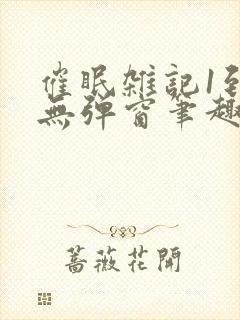 催眠雑記1到
無弹窗筆趣
蔷薇花開